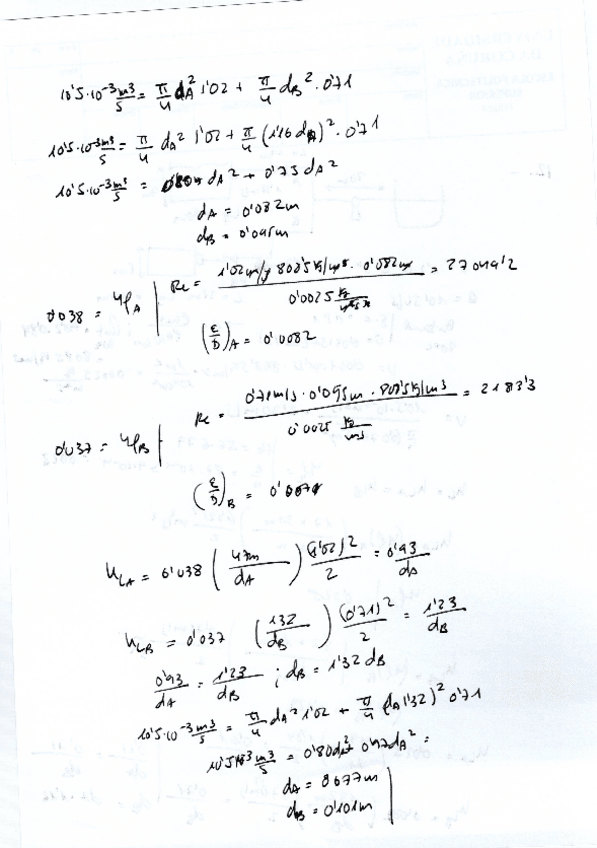 10'5·10⁻³ m³/s = π/4 dA² 1'02 + π/4 dB² · 0'71
10'5·10⁻³ m³/s = π/4 dA² 1'02 + π/4 (1'16 dA)² · 0'71
10'5·10⁻³ m³/s = 0'80 dA² + 0'75 dA²
dA = 0'082m
dB = 0'095m
0'038 = 4fA | Re = 1'02m/s 800'5 kg/m³ · 0'082m / 0'0025 kg/m·s = 27049'2
(ε/D)A = 0'0082
0'037 = 4fB | Re = 0'71m/s · 0'095m · 800'5 kg/m³ / 0'0025 kg/ms = 21833
(ε/D)B = 0'0071
hLA = 0'038 (47m/dA) (1'02)²/2 = 0'93/dA
hLB = 0'037 (132/dB) (0'71)²/2 = 1'23/dB
0'93/dA = 1'23/dB ; dB = 1'32 dB
10'5·10⁻³ m³/s = π/4 dA² 1'02 + π/4 (dA 1'32)² 0'71
10'5·10⁻³ m³/s = 0'80dA² 0'97dA² =
dA = 0'077m
dB = 0'101m